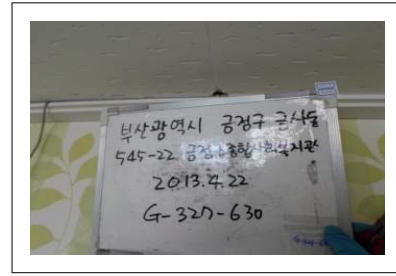 부산광역시 금정구 금사동
545-22 금정구종합사회복지관
2013.4.22
G-327-630